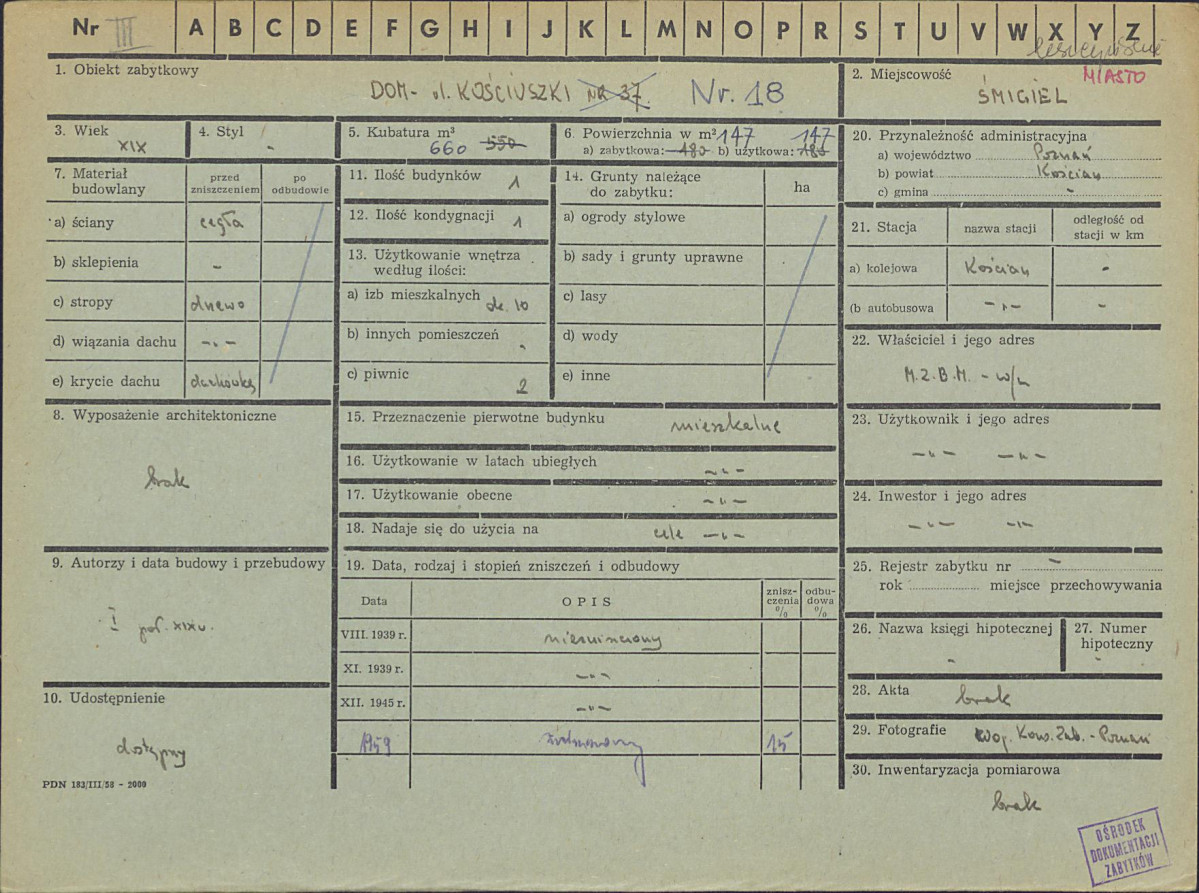 Nr III A B C D E F G H I J K L M N O P R S T U V W X Y Z
1. Obiekt zabytkowy
DOM - ul. KOŚCIUSZKI NR 37. Nr. 18
2. Miejscowość MIASTO
ŚMIGIEL
3. Wiek
XIX
4. Styl
-
5. Kubatura m³
660 550
6. Powierzchnia w m² 147 147
a) zabytkowa: 180 b) użytkowa: 180
7. Materiał budowlany
przed zniszczeniem
po odbudowie
a) ściany cegła
b) sklepienia -
c) stropy drewo
d) wiązania dachu -"-
e) krycie dachu dachówka
8. Wyposażenie architektoniczne
brak
9. Autorzy i data budowy i przebudowy
I poł. XIX w.
10. Udostępnienie
dostępny
PDN 183/III/58 - 2000
11. Ilość budynków 1
12. Ilość kondygnacji 1
13. Użytkowanie wnętrza
według ilości:
a) izb mieszkalnych ok. 10
b) innych pomieszczeń -
c) piwnic 2
14. Grunty należące
do zabytku:
ha
a) ogrody stylowe
b) sady i grunty uprawne
c) lasy
d) wody
e) inne
15. Przeznaczenie pierwotne budynku mieszkalne
16. Użytkowanie w latach ubiegłych -"-
17. Użytkowanie obecne -"-
18. Nadaje się do użycia na cele -"-
19. Data, rodzaj i stopień zniszczeń i odbudowy
Data
OPIS
znisz-
czenia
%
odbu-
dowa
%
VIII. 1939 r.
XI. 1939 r. -"-
XII. 1945 r. -"-
1959 15
20. Przynależność administracyjna
a) województwo Poznań
b) powiat Kościan
c) gmina -
21. Stacja
nazwa stacji
odległość od
stacji w km
a) kolejowa Kościan -
(b autobusowa -"- -
22. Właściciel i jego adres
M.Z.B.M. - w/m
23. Użytkownik i jego adres
-"- -"-
24. Inwestor i jego adres
-"- -"-
25. Rejestr zabytku nr -
rok miejsce przechowywania
26. Nazwa księgi hipotecznej
-
27. Numer
hipoteczny
-
28. Akta brak
29. Fotografie Woj. Kons. Zab. - Poznań
30. Inwentaryzacja pomiarowa
brak
OŚRODEK
DOKUMENTACJI
ZABYTKÓW